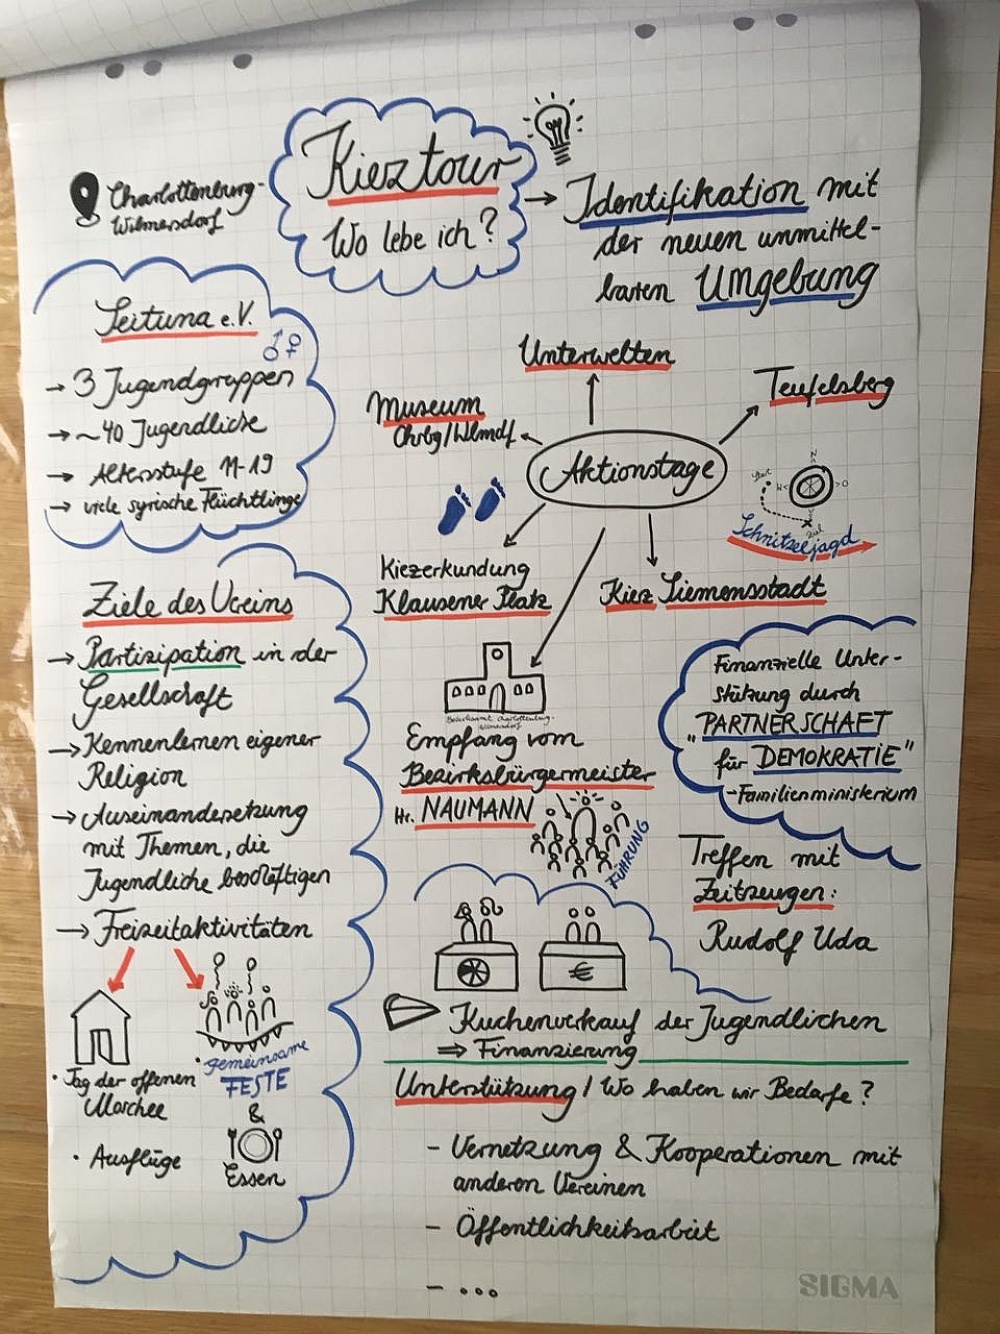 Kieztour
Wo lebe ich?
Charlottenburg-
Wilmersdorf
→ Identifikation mit
der neuen unmittel-
baren Umgebung
Seituna e.V.
→ 3 Jugendgruppen
→ ~40 Jugendliche
→ Altersstufe 11-19
→ viele syrische Flüchtlinge
Ziele des Vereins
→ Partizipation in der
Gesellschaft
→ Kennenlernen eigener
Religion
→ Auseinandersetzung
mit Themen, die
Jugendliche beschäftigen
→ Freizeitaktivitäten
• Tag der offenen
Moschee
• Ausflüge
• gemeinsame
FESTE
&
Essen
Aktionstage
Unterwelten
Museum
Chrbg/Wlmdf
Teufelsberg
Start
N
W
O
Ziel
Schnitzeljagd
Kiezerkundung
Klausener Platz
Kiez Siemensstadt
Bezirksamt Charlottenburg-
Wilmersdorf
Empfang vom
Bezirksbürgermeister
Hr. NAUMANN
FÜHRUNG
Finanzielle Unter-
stützung durch
"PARTNERSCHAFT
für DEMOKRATIE"
-Familienministerium
Treffen mit
Zeitzeugen:
Rudolf Uda
€
Kuchenverkauf der Jugendlichen
⇒ Finanzierung
Unterstützung / Wo haben wir Bedarfe?
- Vernetzung & Kooperationen mit
anderen Vereinen
- Öffentlichkeitsarbeit
- ...
SIGMA